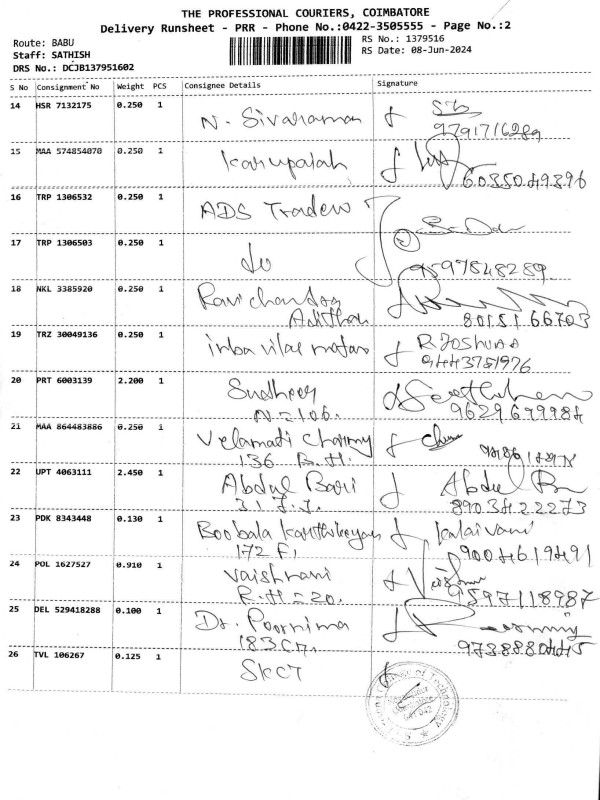 THE PROFESSIONAL COURIERS, COIMBATORE
Delivery Runsheet - PRR - Phone No.:0422-3505555 - Page No.:2
Route: BABU
RS No.: 1379516
Staff: SATHISH
RS Date: 08-Jun-2024
DRS No.: DCJB137951602
S No Consignment No Weight PCS Consignee Details Signature
14 HSR 7132175 0.250 1 N. Sivaraman
9791716289
15 MAA 574854070 0.250 1 Karupaiah
6035049396
16 TRP 1306532 0.250 1 ADS
17 TRP 1306503 0.250 1 do
9597548289
18 NKL 3385920 0.250 1 Ravichandra
80151 66703
19 TRZ 30049136 0.250 1 inba vilas R. JOSHUAA
9443781976
20 PRT 6003139 2.200 1 Sudheer
N=106. 9629699984
21 MAA 864483886 0.250 1 Velamati
136 B.H.
22 UPT 4063111 2.450 1 Abdul Bari Abdul
8903422273
23 PDK 8343448 0.130 1 Boobala Karthikeyan Kalaivani
172 F1 9004619491
24 POL 1627527 0.910 1 Vaishnavi
R.H=20. 9597118987
25 DEL 529418288 0.100 1 Dr. Poornima
183 9738880445
26 TVL 106267 0.125 1 SKCT